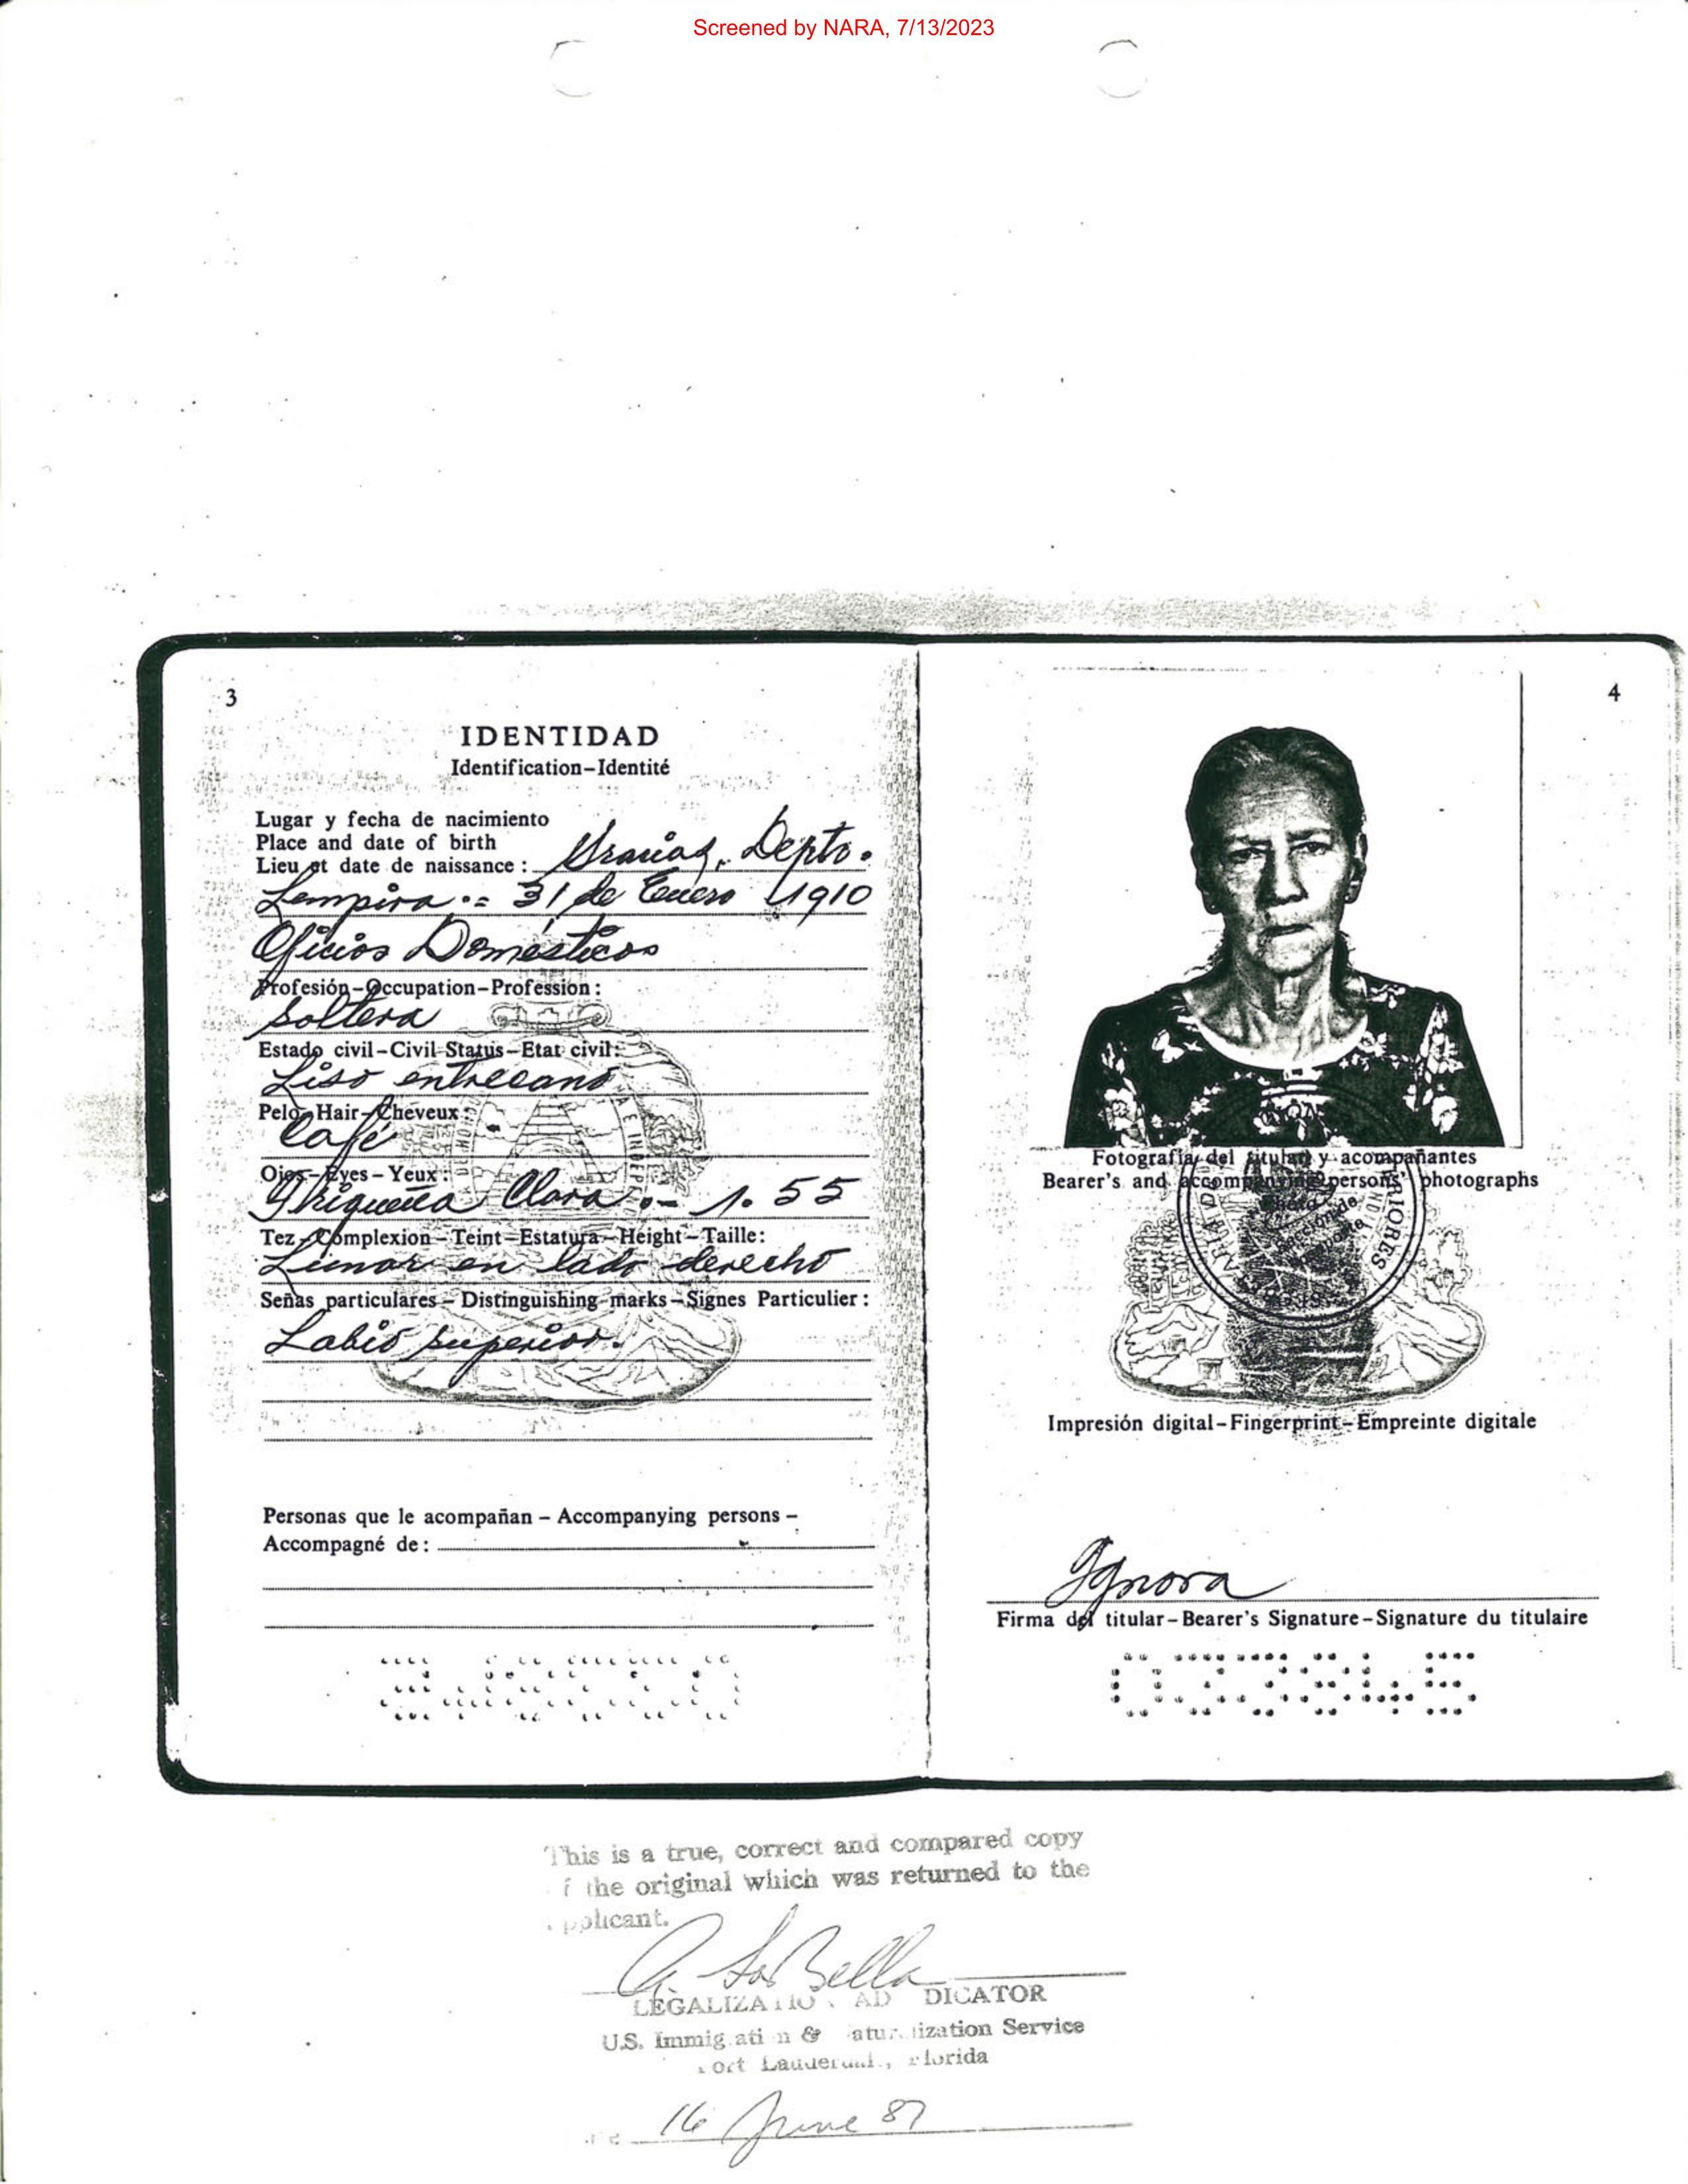 Screened by NARA, 7/13/2023
3
IDENTIDAD
Identification-Identité
Lugar y fecha de nacimiento
Place and date of birth
Lieu et date de naissance : Gracias, Depto.
Lempira.= 31 de Enero 1910
Oficios Domésticos
Profesión-Occupation-Profession :
Soltera
Estado civil-Civil Status-Etat civil:
Liso entrecano
Pelo-Hair-Cheveux :
Café
Ojos-Eyes-Yeux :
Trigueña Clara.- 1.55
Tez-Complexion-Teint-Estatura-Height-Taille:
Lunar en lado derecho
Señas particulares-Distinguishing marks-Signes Particulier :
Labio superior.
Personas que le acompañan - Accompanying persons -
Accompagné de :
4
Fotografía del titular y acompañantes
Bearer's and accompanying persons' photographs
RIORES
Impresión digital-Fingerprint-Empreinte digitale
Ignora
Firma del titular-Bearer's Signature-Signature du titulaire
This is a true, correct and compared copy
f the original which was returned to the
pplicant.
A. LoBella
LEGALIZATIO AD DICATOR
U.S. Immig ati n & atur ization Service
ort Lauderdal , Florida
16 June 87